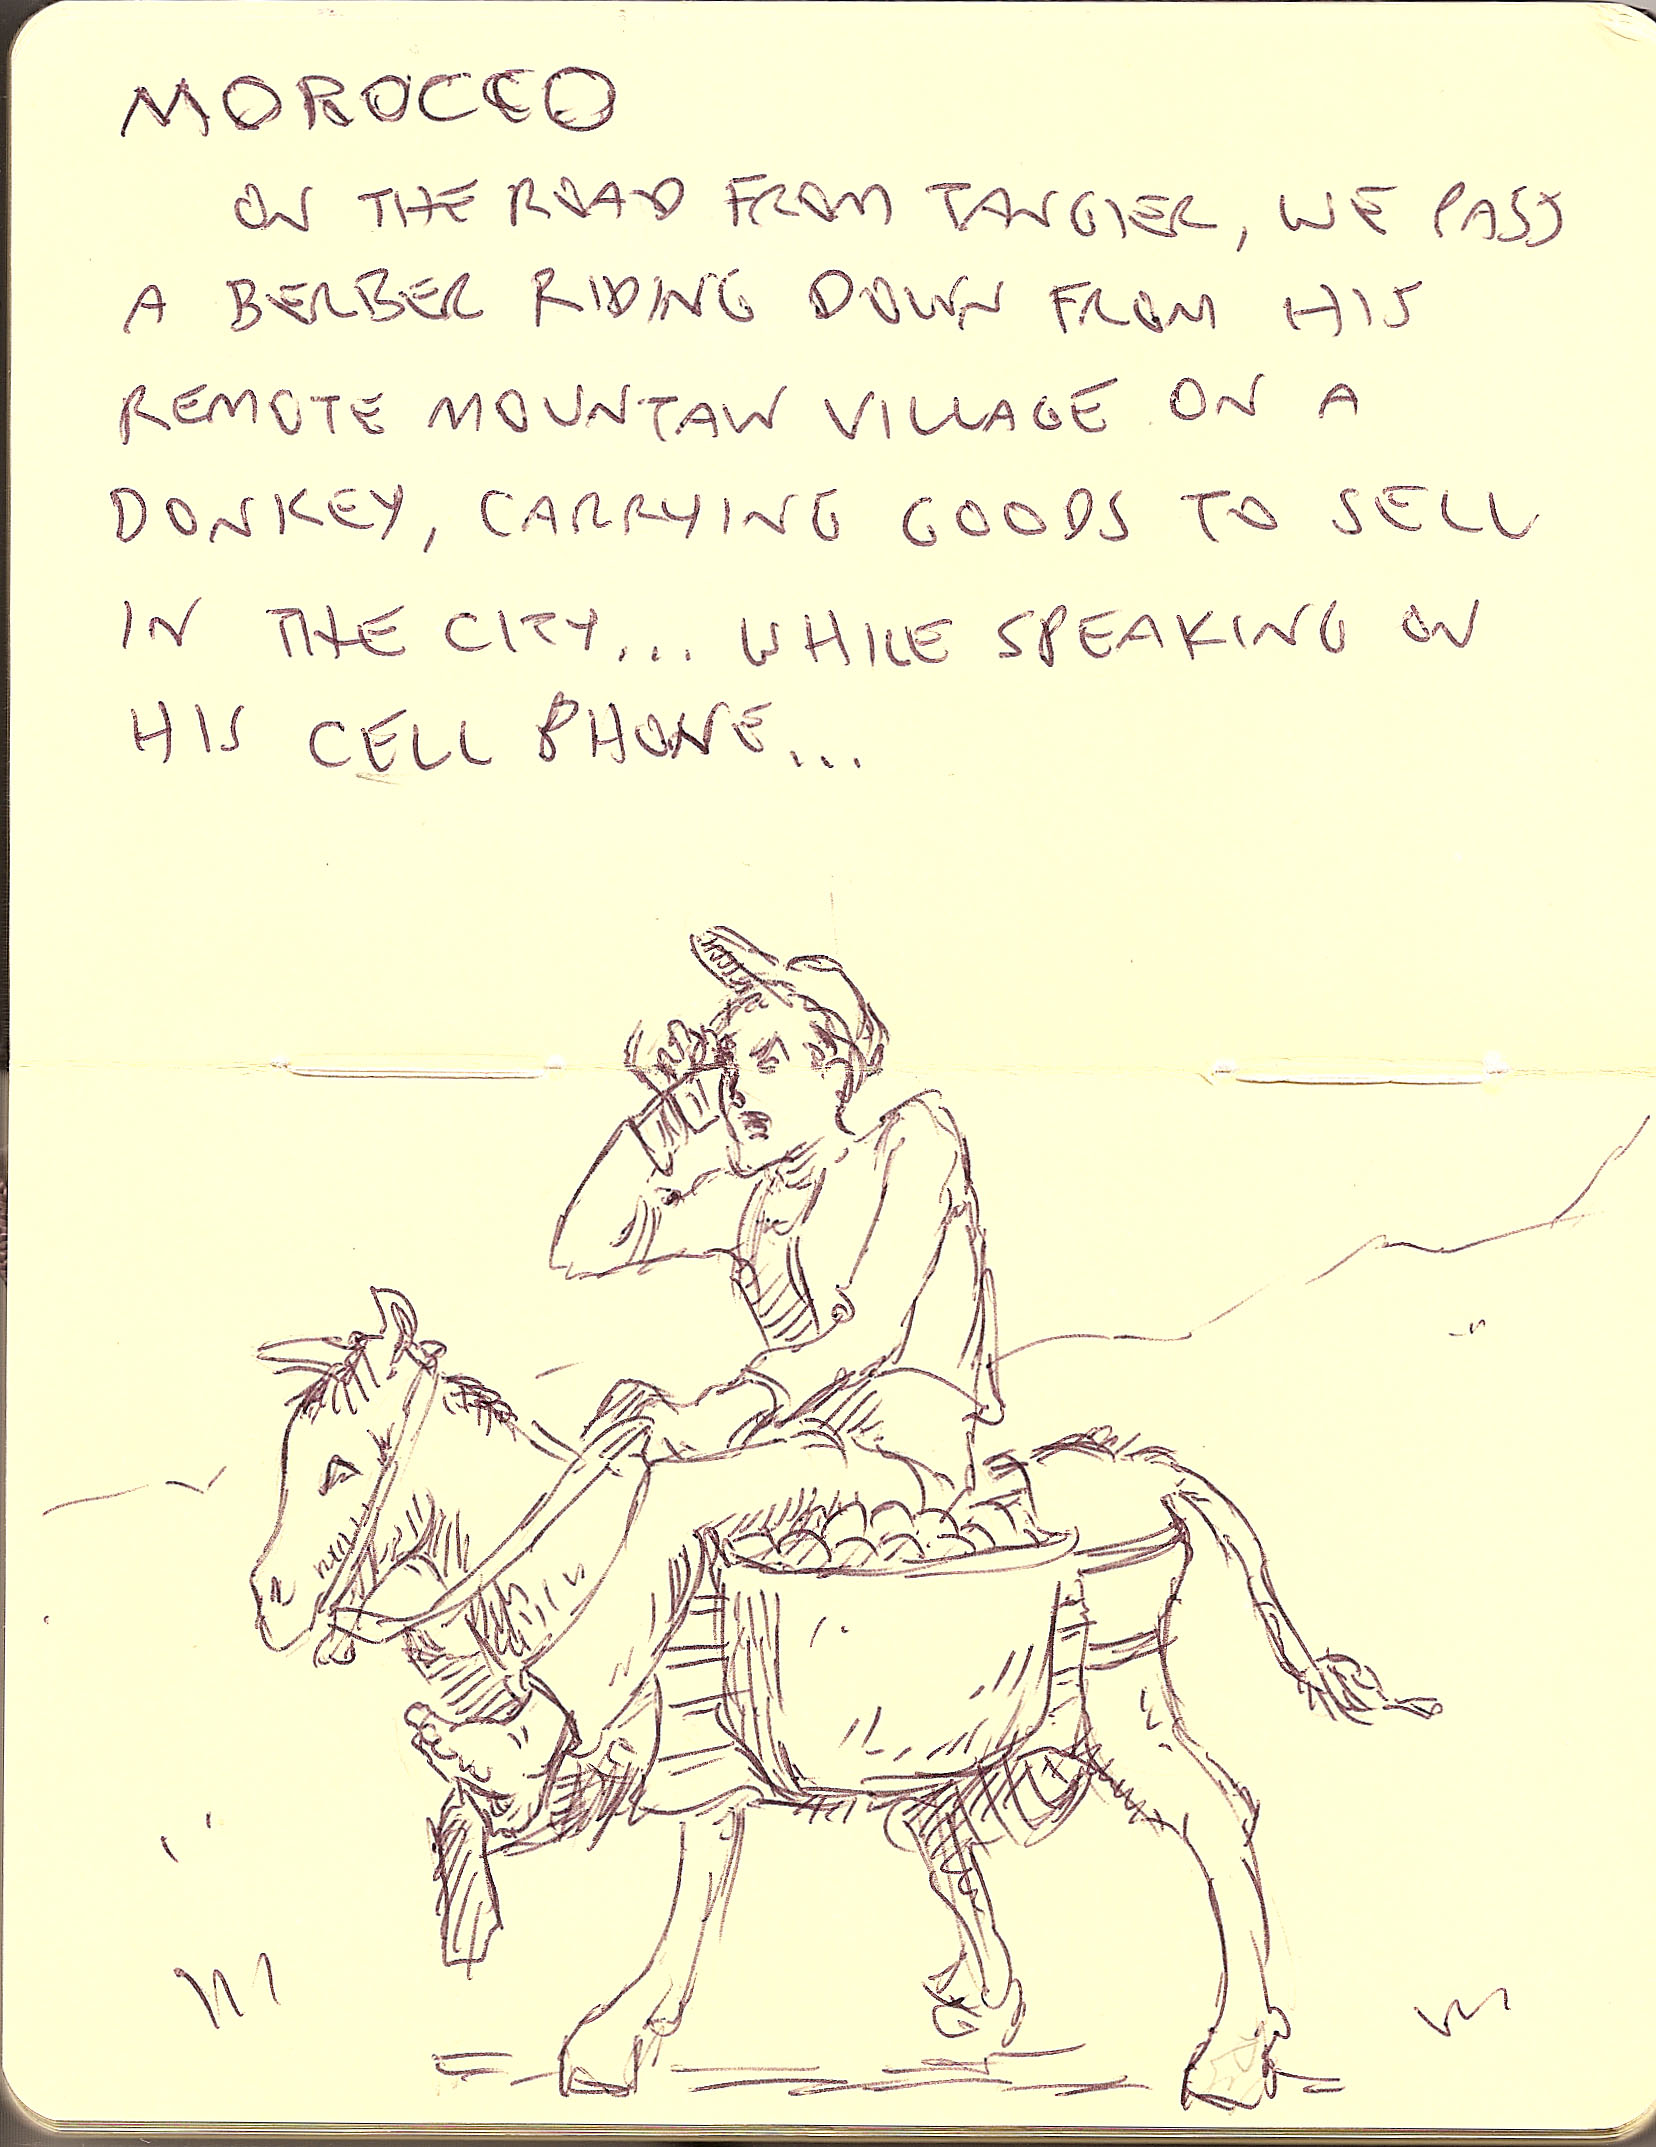 MOROCCO
ON THE ROAD FROM TANGIER, WE PASS
A BERBER RIDING DOWN FROM HIS
REMOTE MOUNTAIN VILLAGE ON A
DONKEY, CARRYING GOODS TO SELL
IN THE CITY... WHILE SPEAKING ON
HIS CELL PHONE...